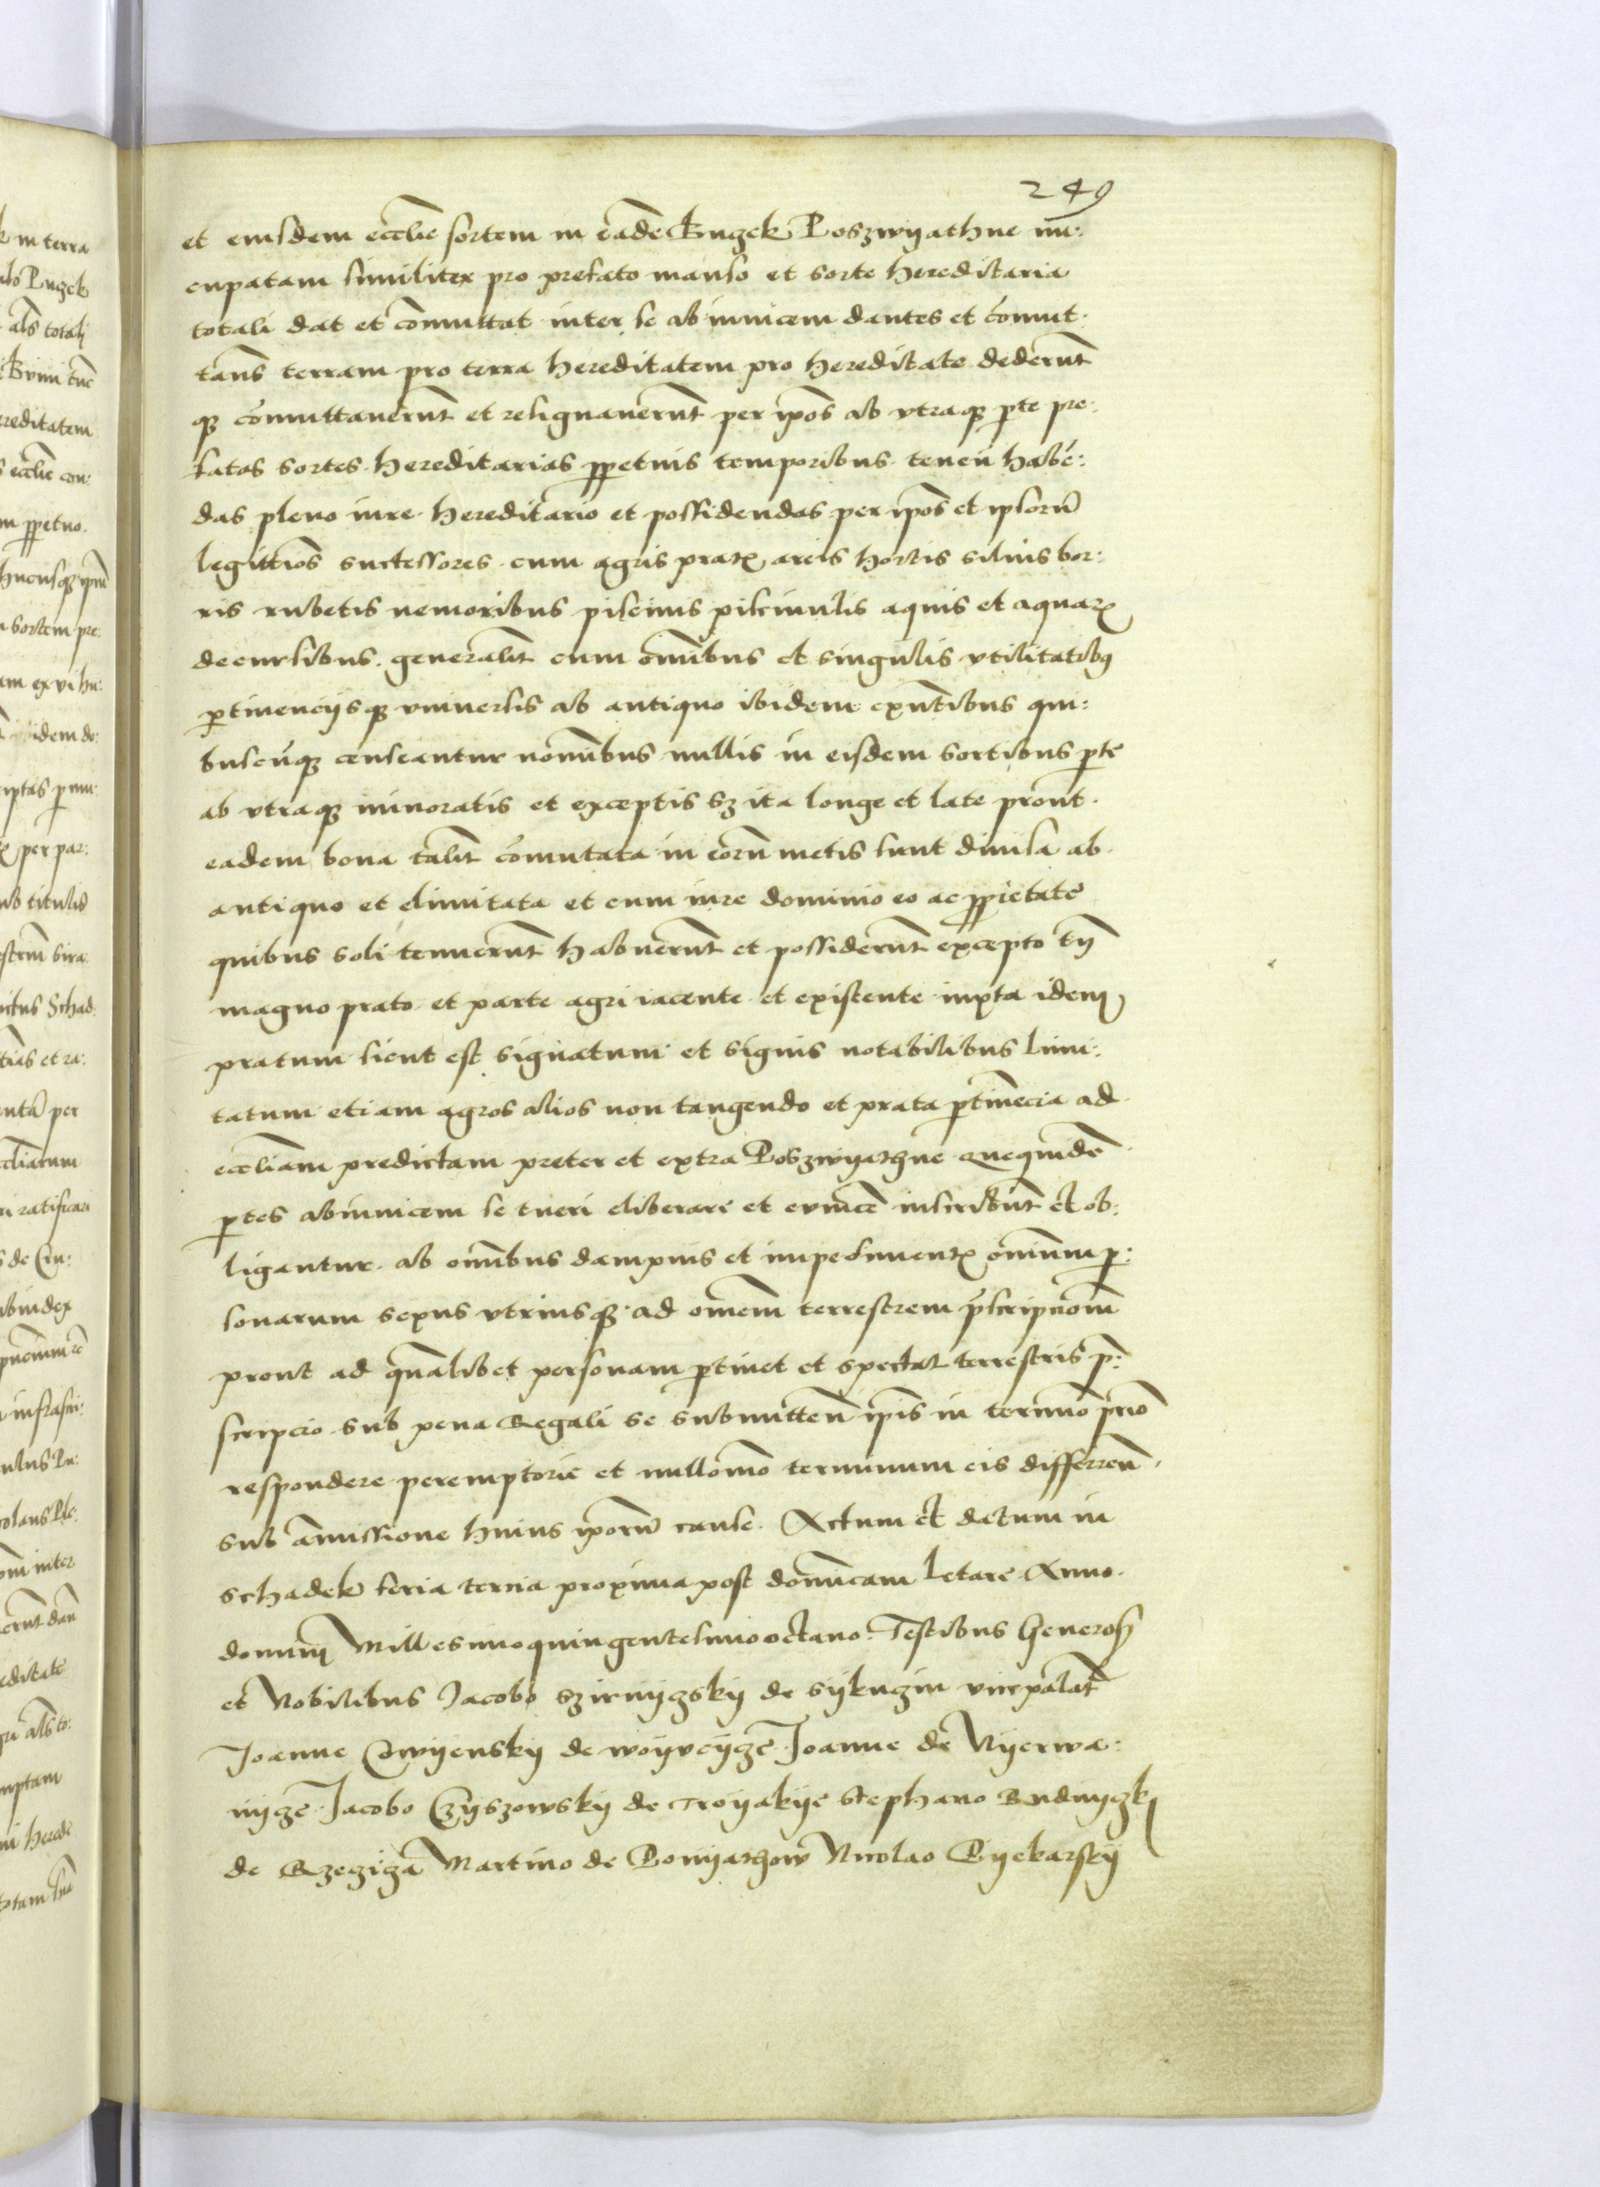 249
et eiusdem eccłie sortem in eadē Bugek Poszwyathne nu:
cupatam similiter pro prefato manso et sorte hereditaria
totali dat et cōmuttat inter se ab inuicem dantes et cōmut
tan̄s terram pro terra hereditatem pro hereditate dederūt
qʒ cōmuttauerūt et resignauerūt per ip̄os ab vtraqʒ p̄te pre:
fatas sortes hereditarias ꝑpetuis temporibus teneñ habē:
das pleno iure hereditario et possidendas per ip̄os et ipsorū
legittīos suctessores cum agris pratꝭ areis hortis siluis bor:
ris rubetis nemoribus piscinis piscinulis aquis et aquarꝝ
decursibus generalīt cum om̄ibus et singulis vtilitatibꝰ
ꝑtinencÿsqʒ vniuersis ab antiquo ibidem exn̄tibus qui:
buscūqʒ censeantur nōībus nullis in eisdem sortibus ꝑte
ab vtraqʒ minoratis et exceptis sʒ ita longe et late prout
eadem bona talīt cōmutata in eorū metis sunt diuisa ab
antiquo et limitata et cum iure dominio eo ac ꝓprietate
quibus soli tenuerūt habuerūt et possiderūt excepto tm̄
magno prato et parte agri iacente et existente iuxta idem
pratum sicut est signatum et signis notabilibus limi:
tatum etiam agros alios non tangendo et prata ꝑtinēcia ad
eccłiam predictam preter et extra Poszwyathne Quequidē
ꝑtes abinuicem se tueri eliberare et euincē inscribūt et ob:
ligantur ab om̄ibus dampnis et impedimentꝭ om̄ium ꝑ:
sonarum sexus vtriusqʒ ad om̄em terrestrem p̄scripcōem
prout ad quālibet personam ꝑtinet et spectat terrestris p̄:
scripcio sub pena Regali se submitteñ ip̄is in termīo p̄rio
respondere peremptorie et nullomō terminum eis differreñ
sub amissione huius ip̄orū cause. Actum et datum in
schadek feria tercia proxima post domīcam letare Anno
domini Millesimoquingentesimooctauo. Testibus Generosꝭ
et Nobilibus Jacobo Szirnÿgskÿ de sÿkuczin vicepalat̄
Joanne Cwÿenskÿ de woÿvcÿgē Joanne de Nÿerwa:
nÿgē Jacobo Czÿszowskÿ de Troÿakÿe Stephano Rudnÿczkÿ
de Rzegigā Martino de Bonÿathow Nicolao Pÿekarskÿ